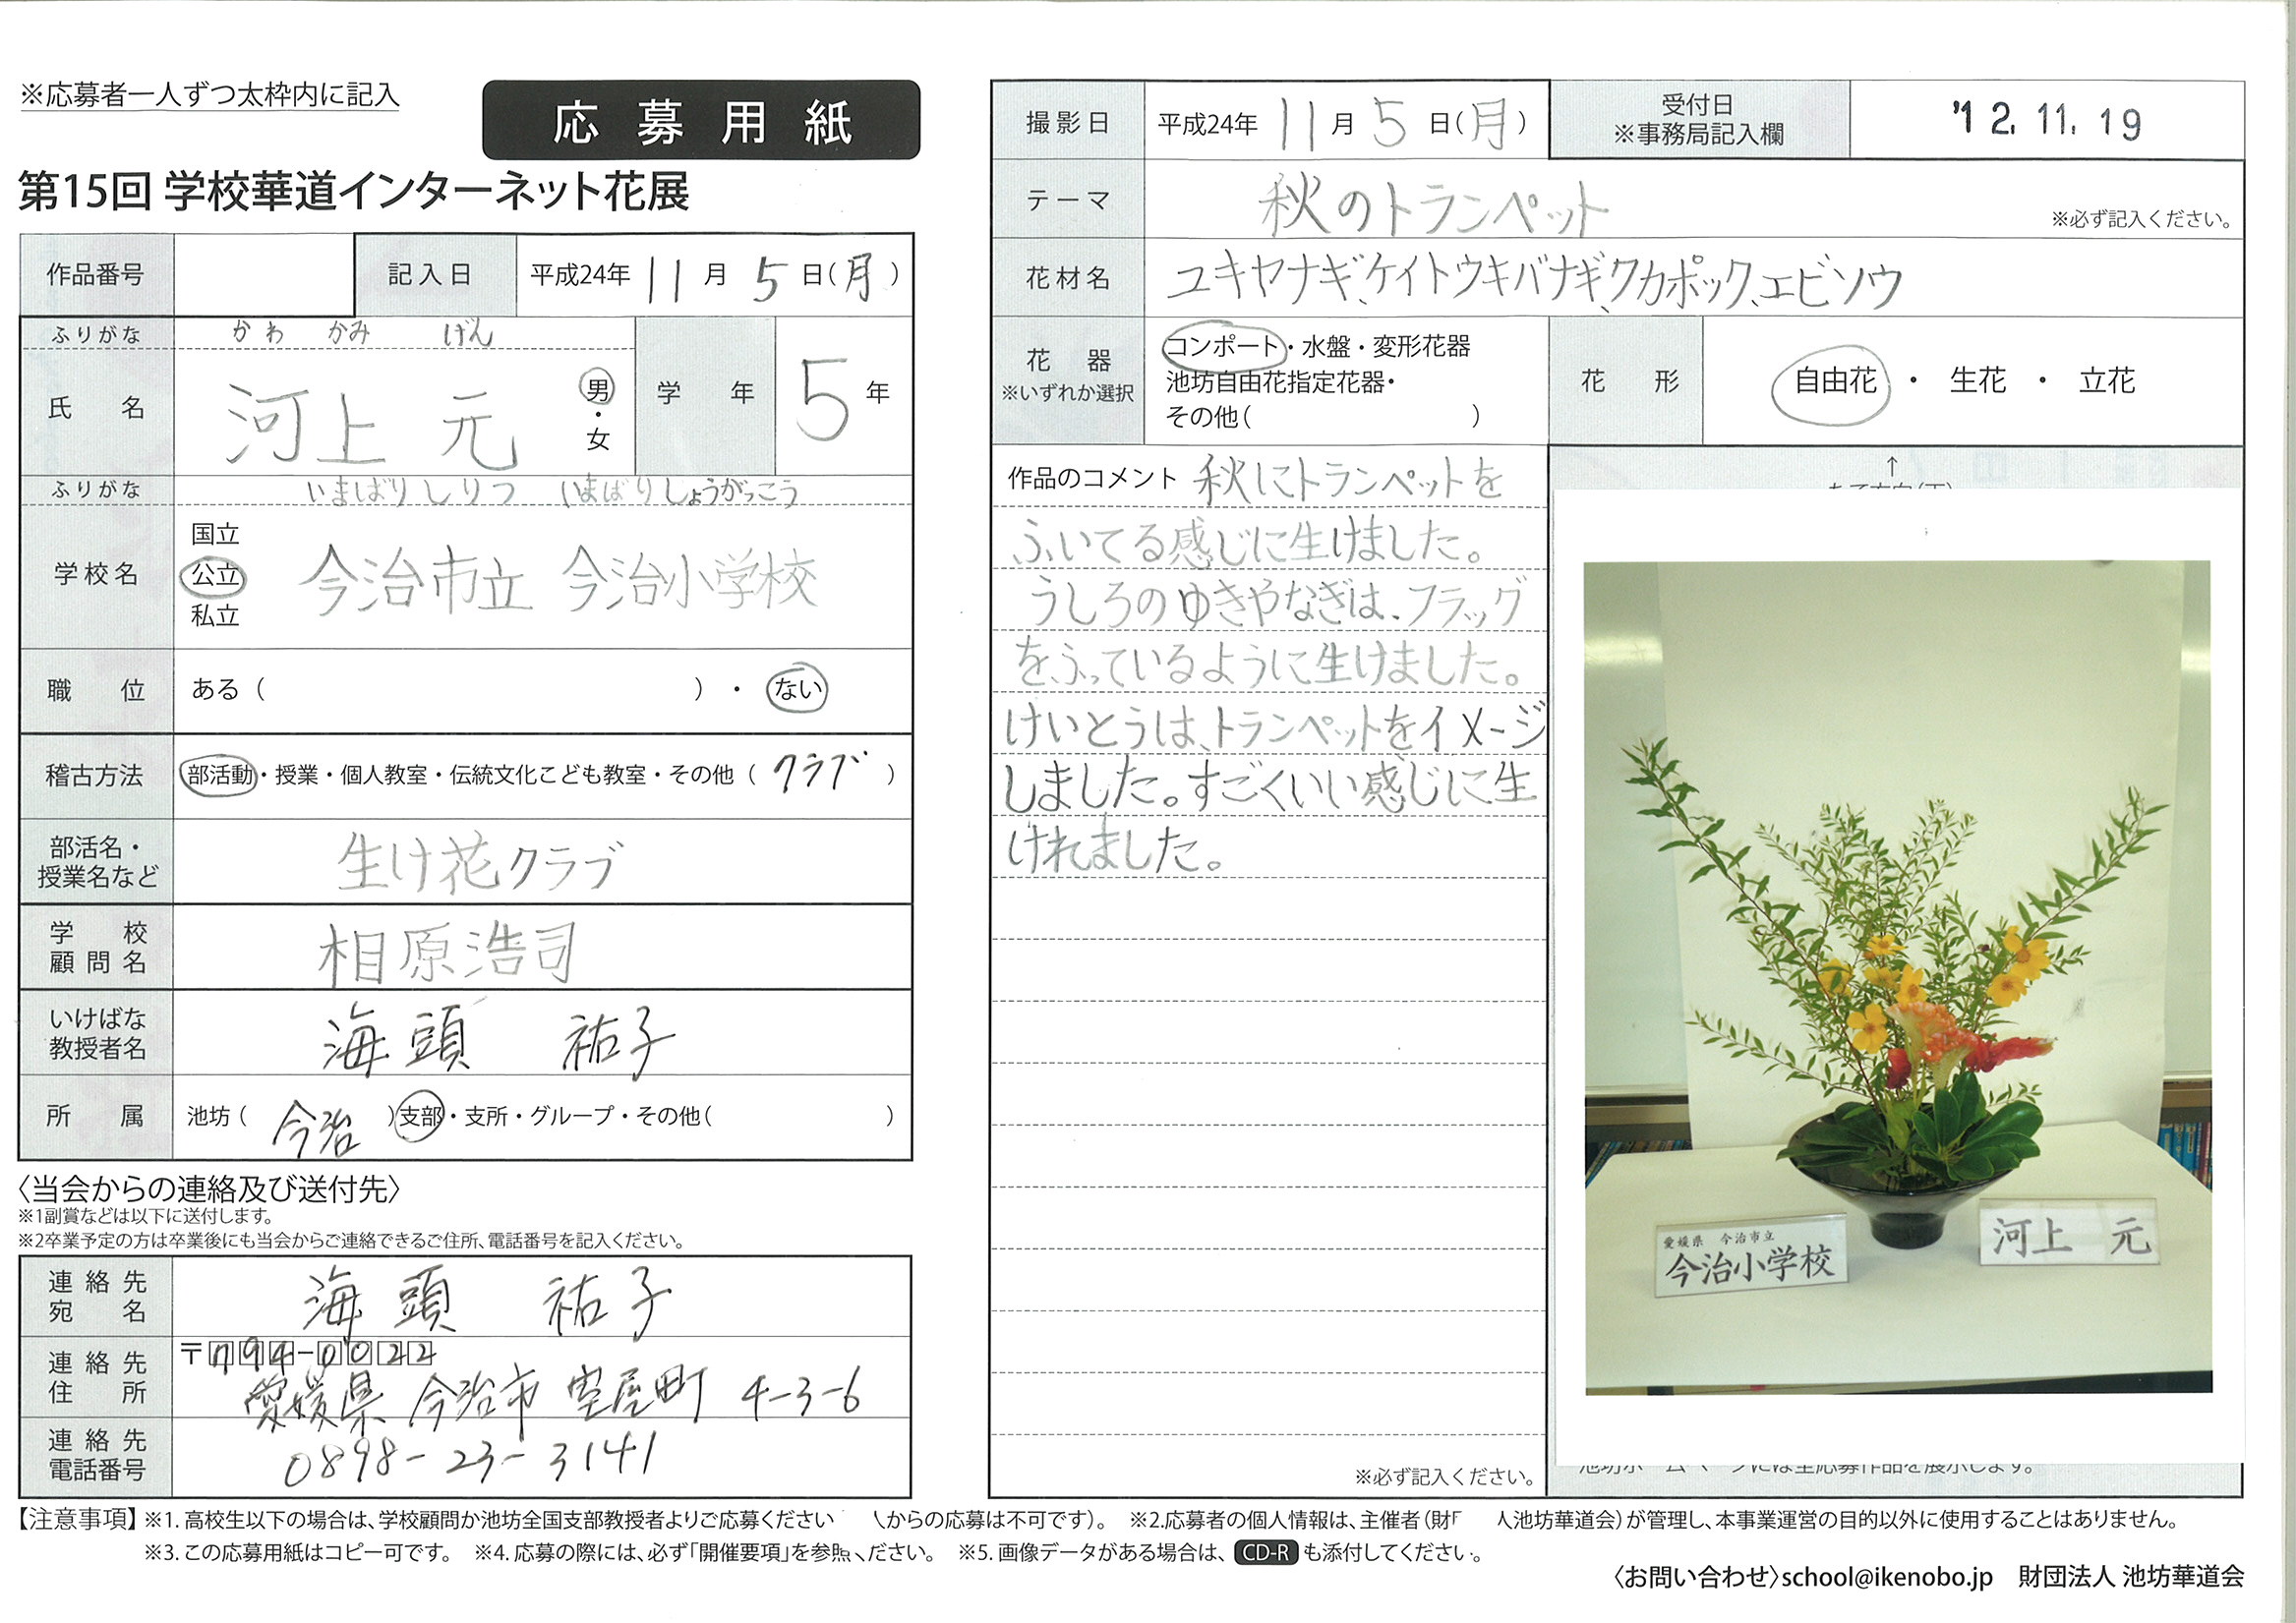 ※応募者一人ずつ太枠内に記入
応募用紙
第15回 学校華道インターネット花展
作品番号
記入日 平成24年 11月 5日(月)
ふりがな かわ かみ げん
氏名 河上 元 男・女
学年 5年
ふりがな いまばりしりつ いまばりしょうがっこう
学校名 国立 公立 私立 今治市立 今治小学校
職位 ある( )・ない
稽古方法 部活動・授業・個人教室・伝統文化こども教室・その他(クラブ)
部活名・授業名など 生け花クラブ
学校顧問名 相原浩司
いけばな教授者名 海頭 祐子
所属 池坊(今治)支部・支所・グループ・その他( )
〈当会からの連絡及び送付先〉
※1副賞などは以下に送付します。
※2卒業予定の方は卒業後にも当会からご連絡できるご住所、電話番号を記入ください。
連絡先宛名 海頭 祐子
連絡先住所 〒794-0022
愛媛県 今治市 室屋町 4-3-6
連絡先電話番号 0898-23-3141
撮影日 平成24年 11月 5日(月)
受付日 ※事務局記入欄 '12.11.19
テーマ 秋のトランペット ※必ず記入ください。
花材名 ユキヤナギ、ケイトウキバナギ、クカポック、エビソウ
花器 ※いずれか選択 コンポート・水盤・変形花器
池坊自由花指定花器・
その他( )
花形 自由花・生花・立花
作品のコメント 秋にトランペットを
ふいてる感じに生けました。
うしろのゆきやなぎは、フラッグ
をふっているように生けました。
けいとうは、トランペットをイメージ
しました。すごくいい感じに生
けれました。
※必ず記入ください。
↑
愛媛県 今治市立
今治小学校
河上 元
【注意事項】※1. 高校生以下の場合は、学校顧問か池坊全国支部教授者よりご応募ください からの応募は不可です)。 ※2.応募者の個人情報は、主催者(財 人池坊華道会)が管理し、本事業運営の目的以外に使用することはありません。
※3. この応募用紙はコピー可です。 ※4. 応募の際には、必ず「開催要項」を参照ください。 ※5. 画像データがある場合は、CD-Rも添付してください。
〈お問い合わせ〉school@ikenobo.jp 財団法人 池坊華道会